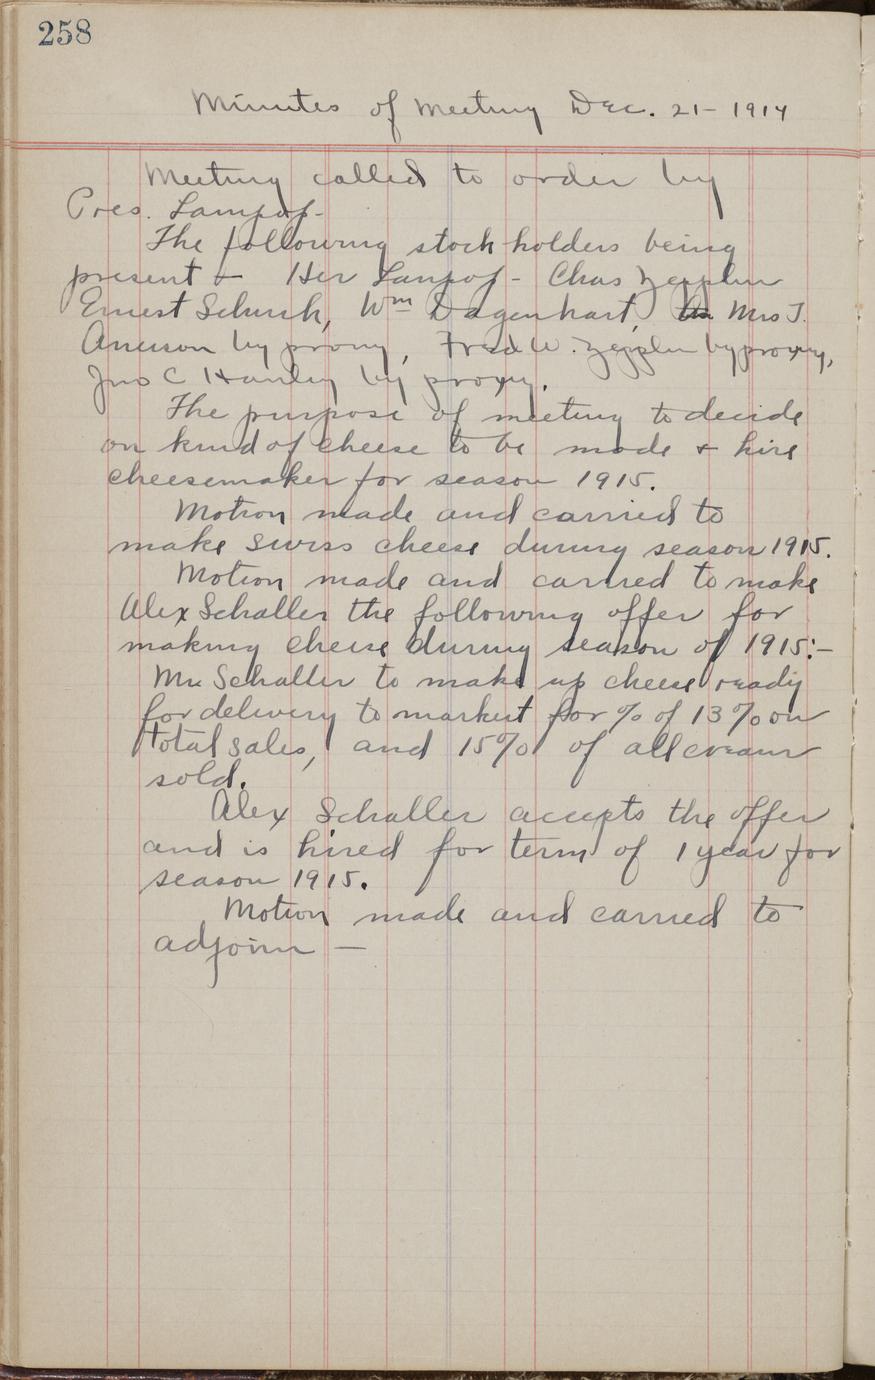 258
Minutes of Meeting Dec. 21 - 1914
Meeting called to order by
Pres. Lampof -
The following stockholders being
present - Her Lampof - Chas Zepplin
Ernest Schurk, Wm Dagenhart, Mrs J.
Anerson by proxy, Fred W. Zepplin by proxy,
Jno C Hanley by proxy.
The purpose of meeting to decide
on kind of cheese to be made + hire
cheesemaker for season 1915.
Motion made and carried to
make Swiss cheese during season 1915.
Motion made and carried to make
Alex Schaller the following offer for
making cheese during season of 1915:-
Mr Schaller to make up cheese ready
for delivery to market for % of 13% on
total sales, and 15% of all cream
sold.
Alex Schaller accepts the offer
and is hired for term of 1 year for
season 1915.
Motion made and carried to
adjoin —